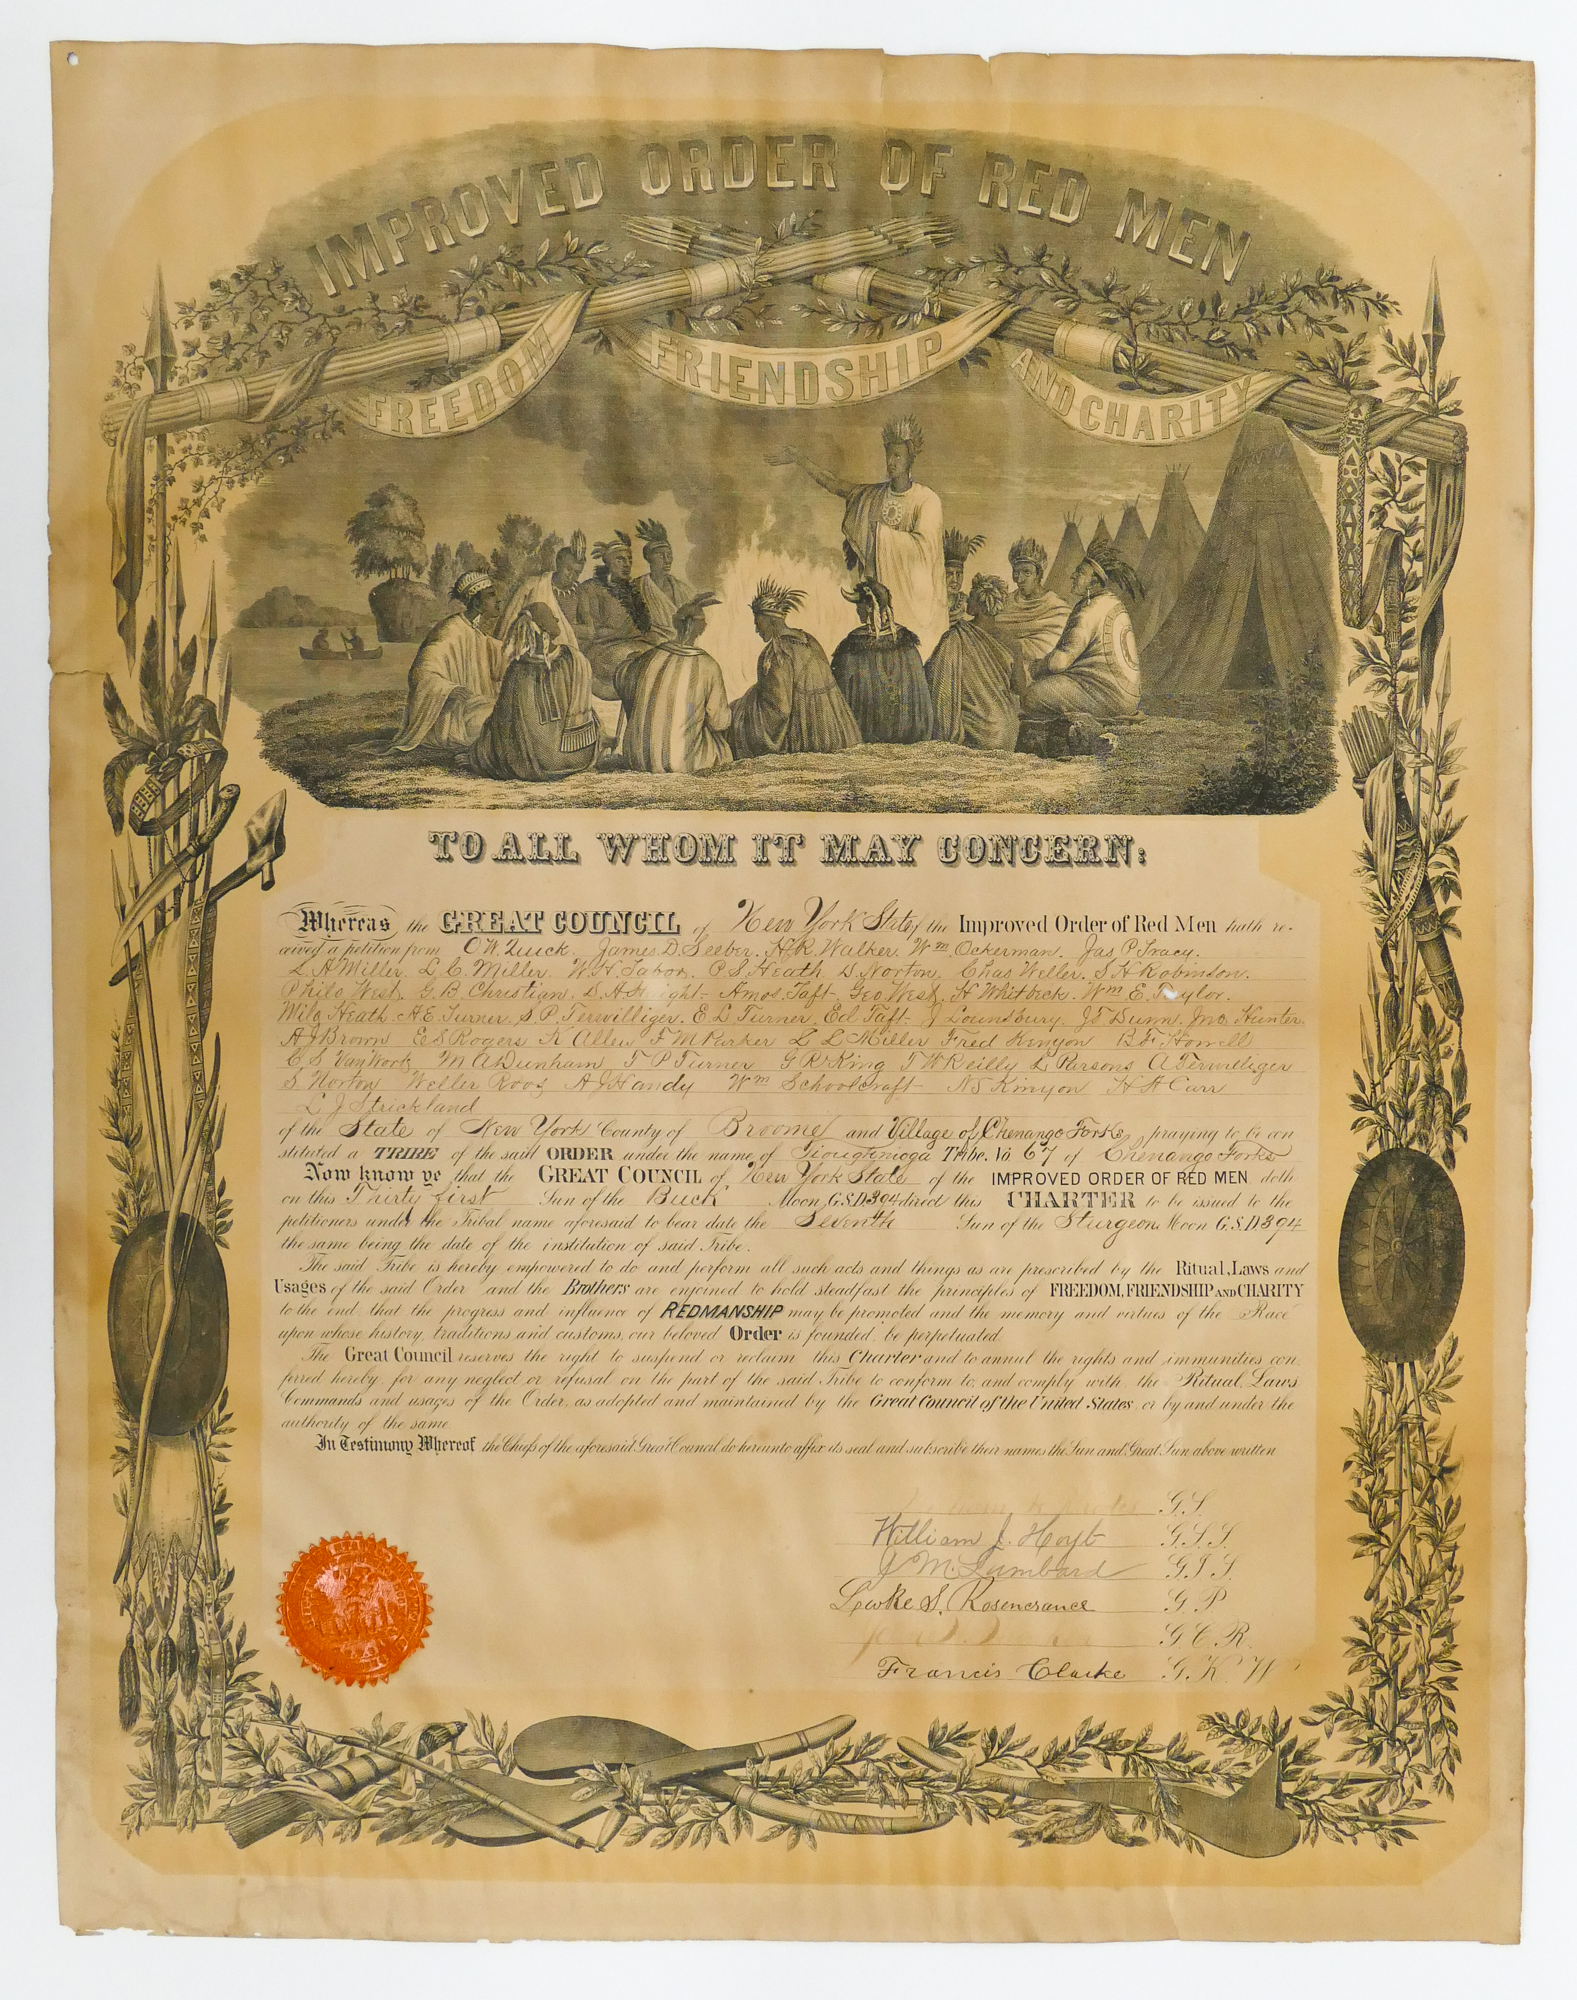 IMPROVED ORDER OF RED MEN
FREEDOM FRIENDSHIP AND CHARITY
TO ALL WHOM IT MAY CONCERN:
Whereas the GREAT COUNCIL of New York State of the Improved Order of Red Men hath re-
ceived a petition from O W. Quick. James D. Seeber. H. R. Walker. Wm. Ockerman. Jas P. Tracy.
L. A Miller. L. C. Miller. W. H. Tabor. C. S. Heath. D. Norton. Chas Weller. S. H Robinson.
Philo West. G. B. Christian. D. A. Amos. Taft. Geo West. H Whitbeck. Wm E.
Milo Heath. A. E. Turner. S. P. Terwilliger. E. L Turner. Ed Taft. J Lounsbury. J. T. Dunn. Jno. Hunter.
A J Brown E S Rogers K Allen F M Parker L L Miller Fred Kenyon B. F. Howell
C. S. Van Work M A Dunham T P Turner G R King T W Reilly L Parsons A Terwilliger
S. Norton Weller Roos A J Handy Wm Schoolcraft N S Kinyon H A Carr
L J Strickland
of the State of New York County of Broome and Village of Chenango Forks praying to be an
stituted a TRIBE of the said ORDER under the name of Tioughnioga Tribe. No 67 of Chenango Forks
Now know ye that the GREAT COUNCIL of New York State of the IMPROVED ORDER OF RED MEN doth
on this Thirty first Sun of the Buck Moon, G.S.D. 394 direct this CHARTER to be issued to the
petitioners under the Tribal name aforesaid to bear date the Seventh Sun of the Sturgeon Moon G.S.D 394
the same being the date of the institution of said Tribe.
The said Tribe is hereby empowered to do and perform all such acts and things as are prescribed by the Ritual, Laws and
Usages of the said Order and the Brothers are enjoined to hold steadfast the principles of FREEDOM, FRIENDSHIP AND CHARITY
to the end that the progress and influence of REDMANSHIP may be promoted and the memory and virtues of the Race
upon whose history, traditions and customs, our beloved Order is founded, be perpetuated.
The Great Council reserves the right to suspend or reclaim this Charter and to annul the rights and immunities con
ferred hereby, for any neglect or refusal on the part of the said Tribe to conform to, and comply with, the Ritual, Laws
Commands and usages of the Order, as adopted and maintained by the Great Council of the United States, or by and under the
authority of the same.
In Testimony Whereof the Chiefs of the aforesaid Great Council do hereunto affix its seal and subscribe their names the Sun and Great Sun above written
G. S.
William J. Hoyt G. S. S.
J M. Lombard G. J. S.
Lewke S. Rosencrance G. P.
G. C. R.
Francis Clarke G. K. W